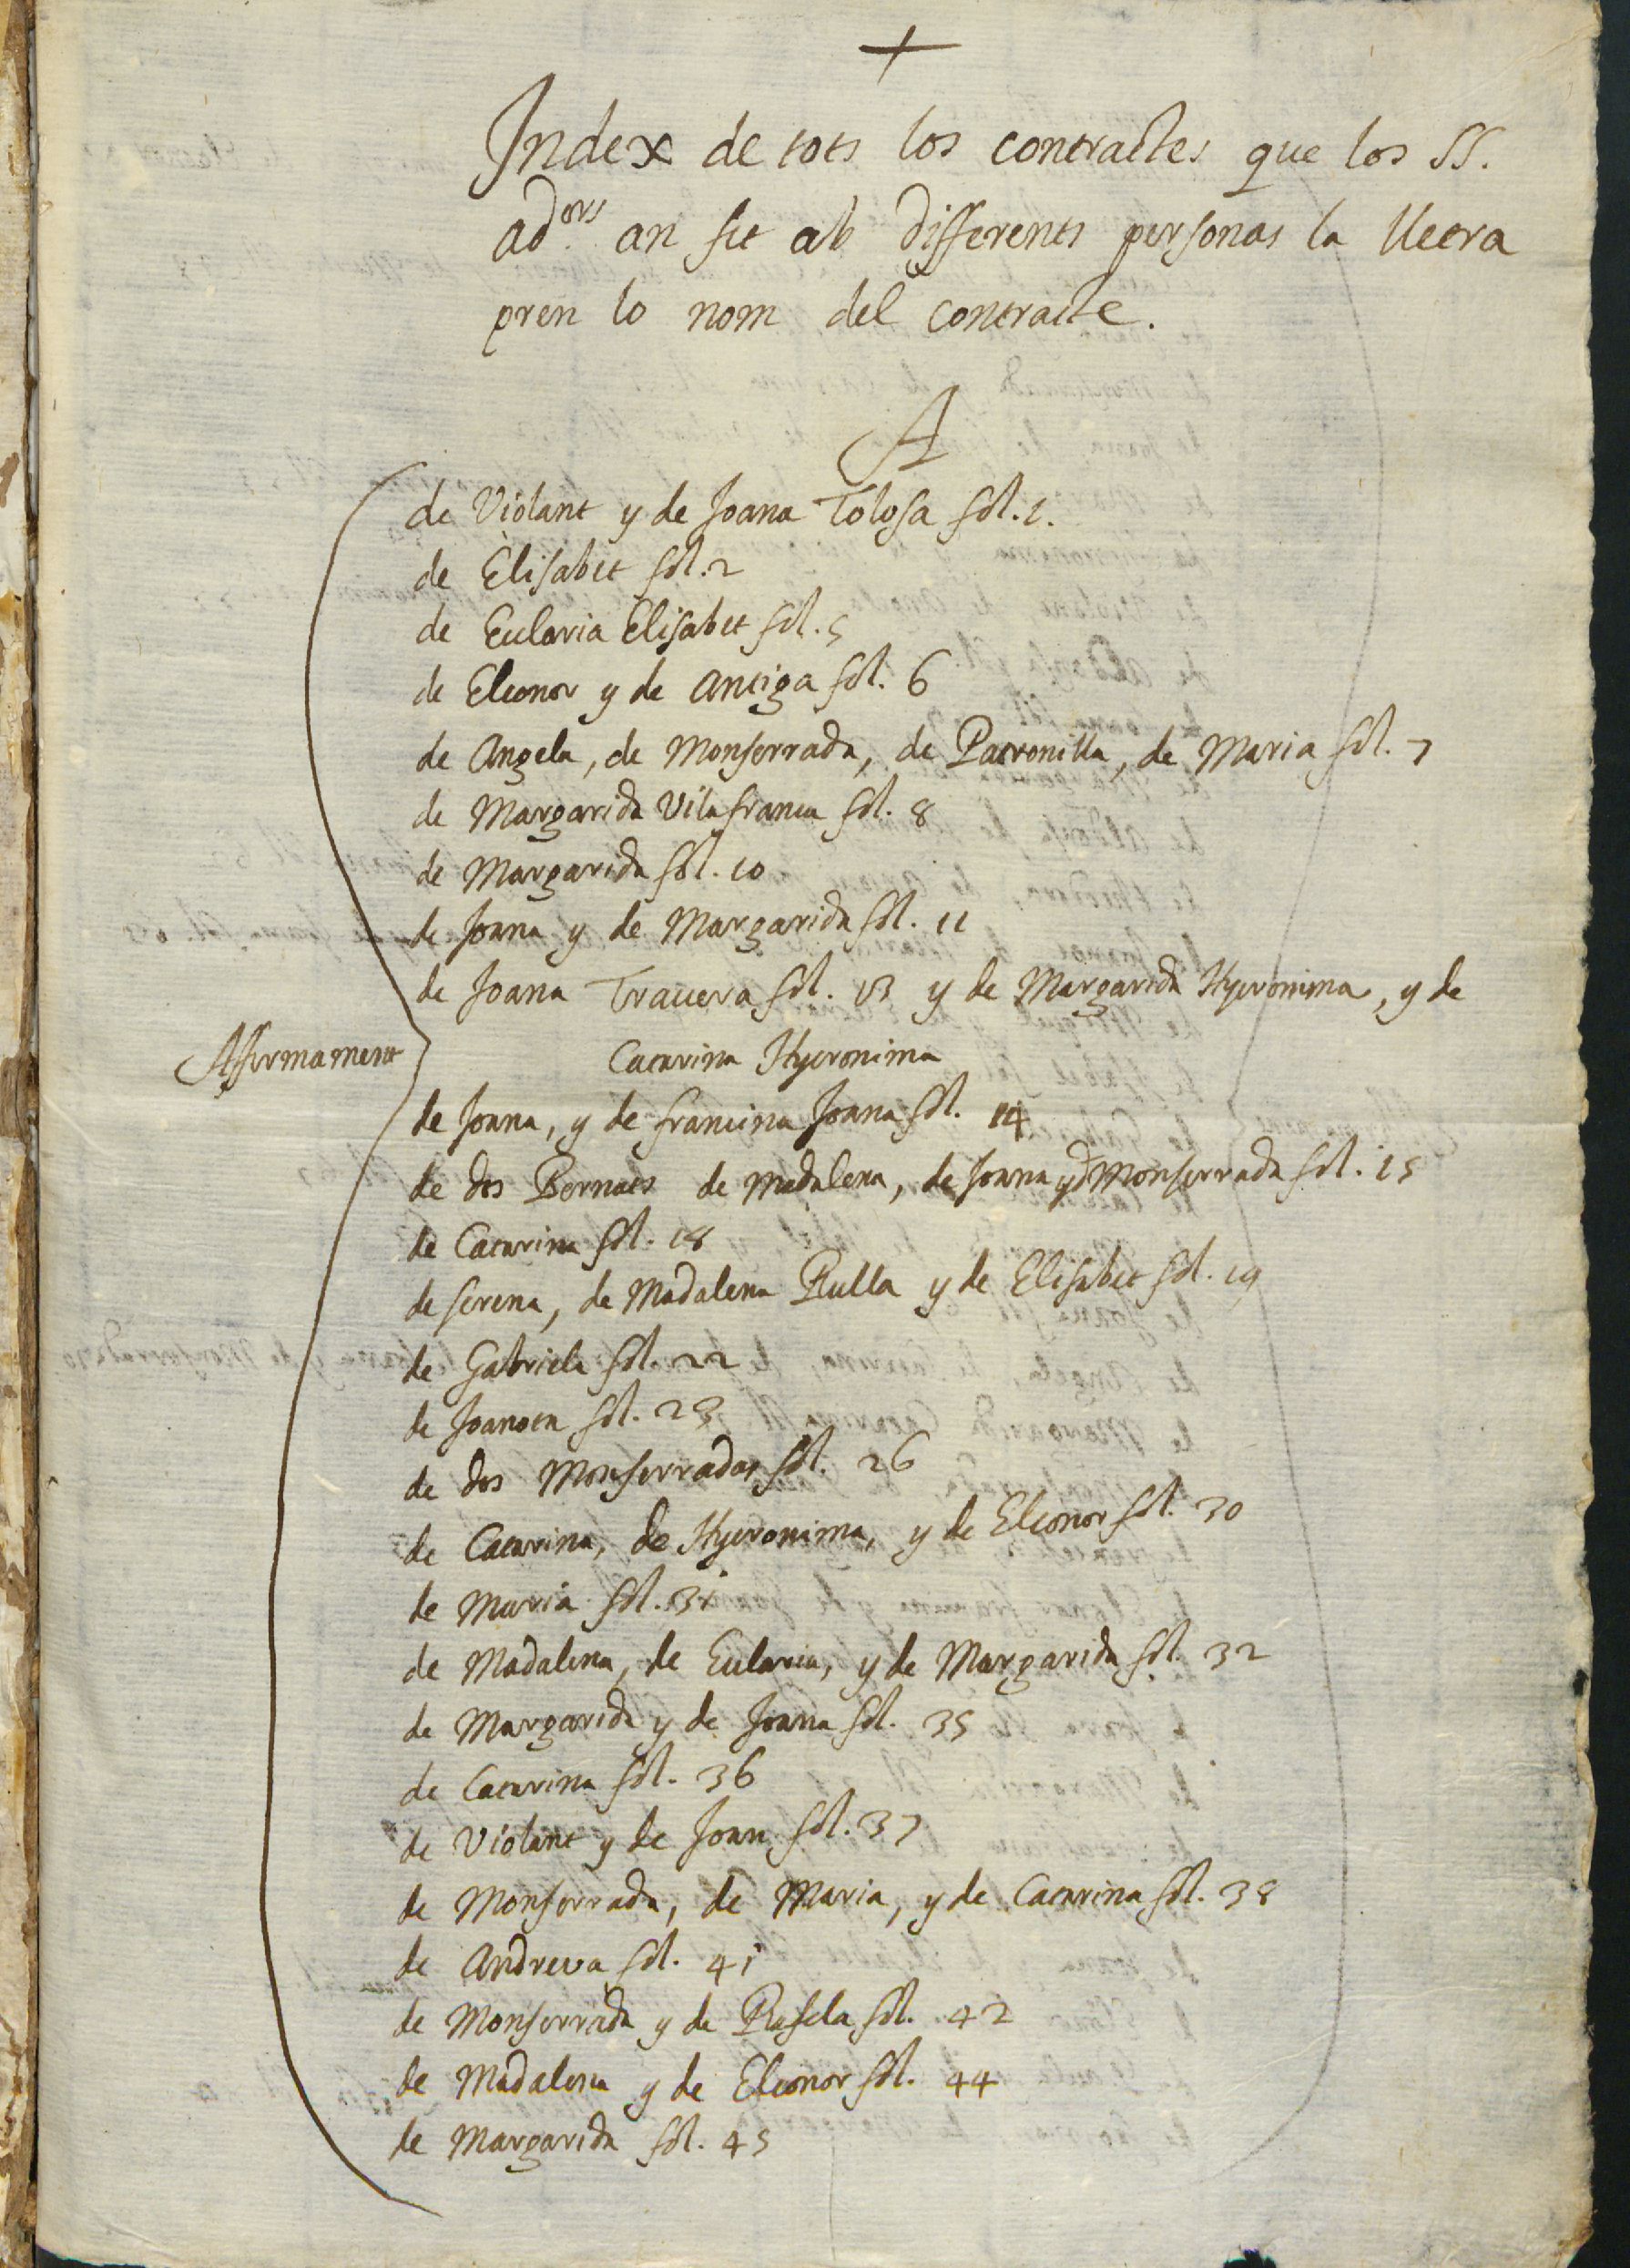 +
Index de tots los contractes que los SS.
ad.ors an fet ab differents personas la lletra
pren lo nom del contracte.
A
de Violant y de Joana Tolosa fol. 1.
de Elisabet fol. 2
de Eularia Elisabet fol. 5
de Eleonor y de Antiga fol. 6
de Angela, de Monserrada, de Patronilla, de Maria fol. 7
de Margarida Vilafranca fol. 8
de Margarida fol. 10
de Joana y de Margarida fol. 11
de Joana Travera fol. 13 y de Margarida Hyeronima, y de
Affermament
Catarina Hyeronima
de Joana, y de francina Joana fol. 14
de dos Bernats de Madalena, de Joana y d Monserrada fol. 15
de Catarina fol. 18
de serena, de Madalena Rulla y de Elisabet fol. 19
de Gabriela fol. 22
de Joanota fol. 23
de dos Monserradas fol. 26
de Catarina, de Hyeronima, y de Eleonor fol. 30
de Maria fol. 31
de Madalena, de Eularia, y de Margarida fol. 32
de Margarida y de Joana fol. 35
de Catarina fol. 36
de Violant y de Joan fol. 37
de Monserrada, de Maria, y de Catarina fol. 38
de Andreva fol. 41
de Monserrada y de Rafela fol. 42
de Madalena y de Eleonor fol. 44
de Margarida fol. 45